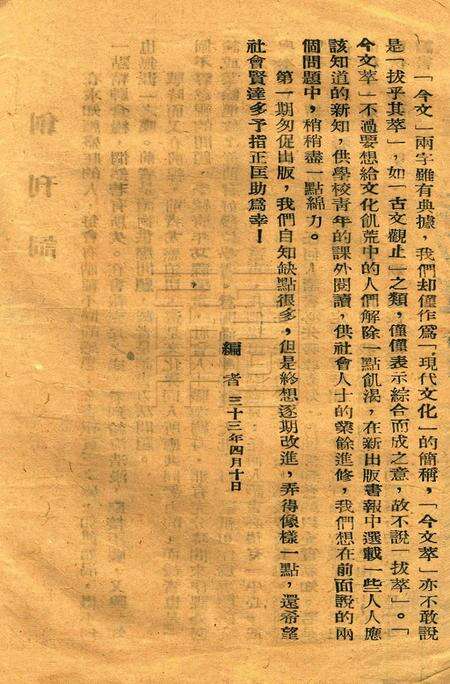 「今文」兩字雖有典據，我們却僅作爲「現代文化」的簡稱，「今文萃」亦不敢說
是「拔乎其萃」，如「古文觀止」之類，僅僅表示綜合而成之意，故不說「拔萃」。「
今文萃」不過要想給文化飢荒中的人們解除一點飢渴，在新出版書報中選載一些人人應
該知道的新知，供學校青年的課外閱讀，供社會人士的業餘進修，我們想在前面說的兩
個問題中，稍稍盡一點綿力。
第一期匆促出版，我們自知缺點很多，但是終想逐期改進，弄得像樣一點，還希望
社會賢達多予指正匡助爲幸！
編者 三十三年四月十日